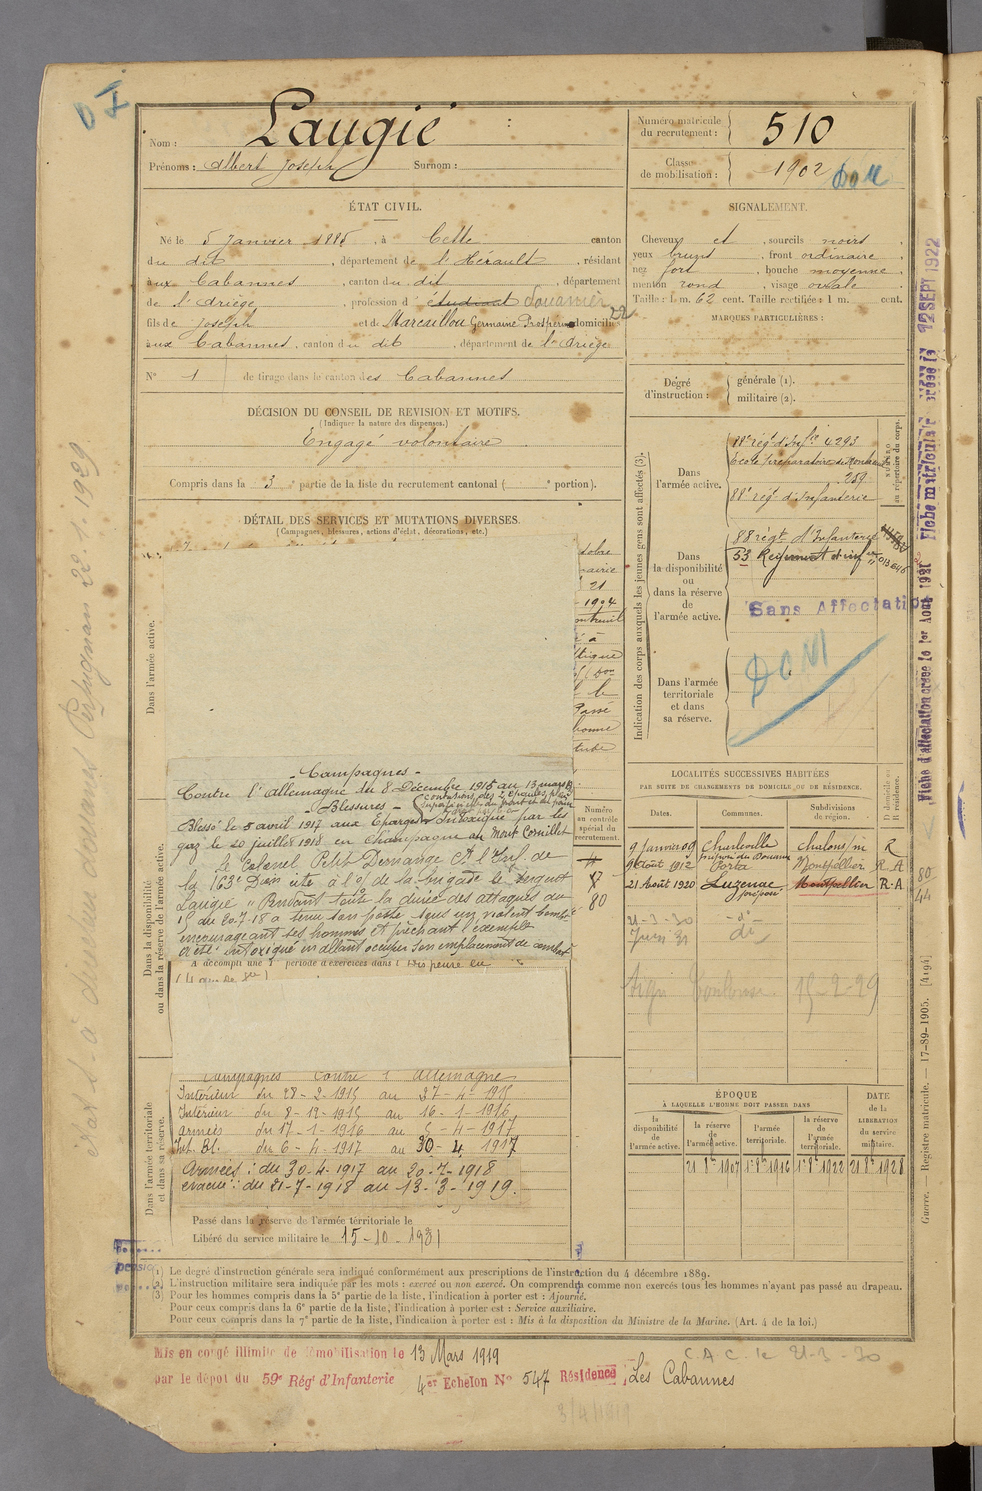 Nom : Laugié
Prénoms : Albert Joseph Surnom :
Numéro matricule du recrutement : 510
Classe de mobilisation : 1902
ÉTAT CIVIL.
Né le 5 Janvier 1885, à Cette canton
du dit, département de l'Hérault, résidant
aux Cabannes, canton du dit, département
de l'Ariège, profession d'étudiant Douanier
fils de Joseph et de Marcaillou Germaine Prospérine domiciliés
aux Cabannes, canton du dit, département de l'Ariège
N° 1 de tirage dans le canton des Cabannes
SIGNALEMENT.
Cheveux et, sourcils noirs,
yeux bruns, front ordinaire,
nez fort, bouche moyenne,
menton rond, visage ovale.
Taille : 1 m. 62 cent. Taille rectifiée : 1 m. cent.
MARQUES PARTICULIÈRES :
Degré d'instruction : générale (1).
militaire (2).
DÉCISION DU CONSEIL DE REVISION ET MOTIFS.
(Indiquer la nature des dispenses.)
Engagé volontaire
Compris dans la 3e partie de la liste du recrutement cantonal ( e portion).
DÉTAIL DES SERVICES ET MUTATIONS DIVERSES.
(Campagnes, blessures, actions d'éclat, décorations, etc.)
Dans l'armée active.
Dans la disponibilité ou dans la réserve de l'armée active.
Dans l'armée territoriale et dans sa réserve.
21
1904
- Campagnes -
Contre l'allemagne du 8 Décembre 1915 au 13 mars 19
- Blessures -
contusions des 2 épaules, plaie
Blessé le 5 avril 1917 aux Eparges - Intoxiqué par les
gaz le 20 juillet 1918 en Champagne au Mont Cornillet
Le Colonel Petit Demange Ct l'Inf. de
la 163e Don cite à l'o/ de la brigade le Sergent
Laugié " Pendant toute la durée des attaques du
15 au 20.7.18 a tenu son poste sous un violent bombt
encourageant ses hommes et prêchant l'exemple
a été intoxiqué en allant occuper son emplacement de combat
A accompli une 1e période d'exercices dans l Dispensé en
Campagnes contre l'allemagne
Intérieur du 28-2-1915 au 27-4-1915
Intérieur du 8-12-1915 au 16-1-1916
armées du 17-1-1916 au 5-4-1917
Int. Bl. du 6-4-1917 au 30-4-1917
Armées : du 30-4-1917 au 20-7-1918
evacué : du 21-7-1918 au 13-3-1919.
Passé dans la réserve de l'armée territoriale le
Libéré du service militaire le 15-10-1931
Numéro au contrôle spécial du recrutement.
80
Indication des corps auxquels les jeunes gens sont affectés (3).
NUMÉRO au répertoire du corps.
Dans l'armée active.
88e régt d'Inf.ie 4293
Ecole Préparatoire de Montreuil
259
88e régt d'Infanterie
Dans la disponibilité ou dans la réserve de l'armée active.
88 régt d'Infanterie
53 Régiment d'inf.
Sans Affectation
Dans l'armée territoriale et dans sa réserve.
DOM
LOCALITÉS SUCCESSIVES HABITÉES
PAR SUITE DE CHANGEMENTS DE DOMICILE OU DE RÉSIDENCE.
Dates. Communes. Subdivisions de région. D domicile ou R résidence.
9 janvier 09 Charleville Chalons s/m R
préposé des Douanes
9 Août 1912 Porta Montpellier R. A
21 Août 1920 Luzenac Montpellier R. A
préposé
21-3-30 -do-
Juin 31 do
80
44
Toulouse 15-2-29
ÉPOQUE
À LAQUELLE L'HOMME DOIT PASSER DANS
la disponibilité de l'armée active. la réserve de l'armée active. l'armée territoriale. la réserve de l'armée territoriale.
DATE de la LIBÉRATION du service militaire.
21 8bre 1907 1er 8bre 1916 1er 8bre 1922 21 8bre 1928
(1) Le degré d'instruction générale sera indiqué conformément aux prescriptions de l'instruction du 4 décembre 1889.
(2) L'instruction militaire sera indiquée par les mots : exercé ou non exercé. On comprendra comme non exercés tous les hommes n'ayant pas passé au drapeau.
(3) Pour les hommes compris dans la 5e partie de la liste, l'indication à porter est : Ajourné.
Pour ceux compris dans la 6e partie de la liste, l'indication à porter est : Service auxiliaire.
Pour ceux compris dans la 7e partie de la liste, l'indication à porter est : Mis à la disposition du Ministre de la Marine. (Art. 4 de la loi.)
Mis en congé illimité de démobilisation le 13 Mars 1919
par le dépôt du 59e Régt d'Infanterie 4er Echelon N° 547 Résidence Les Cabannes
C.A.C. le 21-3-30
3/4/1919
Guerre. — Registre matricule. — 17-89-1905. [4194]
Fiche d'affectation créée le 1er Août 1921 Fiche matriculaire créée le 12 SEPT 1922
Perpignan 22.1.1929